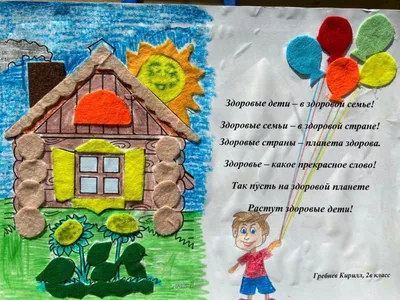 Здоровые дети – в здоровой семье!
Здоровые семьи – в здоровой стране!
Здоровые страны – планета здорова.
Здоровье – какое прекрасное слово!
Так пусть на здоровой планете
Растут здоровые дети!
Гребнев Кирилл, 2в класс